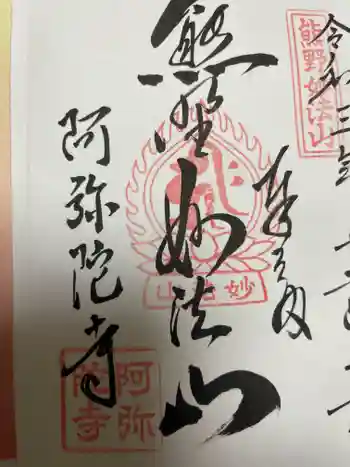 令和三年
熊野妙法山
奉拝
熊野妙法山
妙法山
阿弥陀寺
阿弥
陀寺